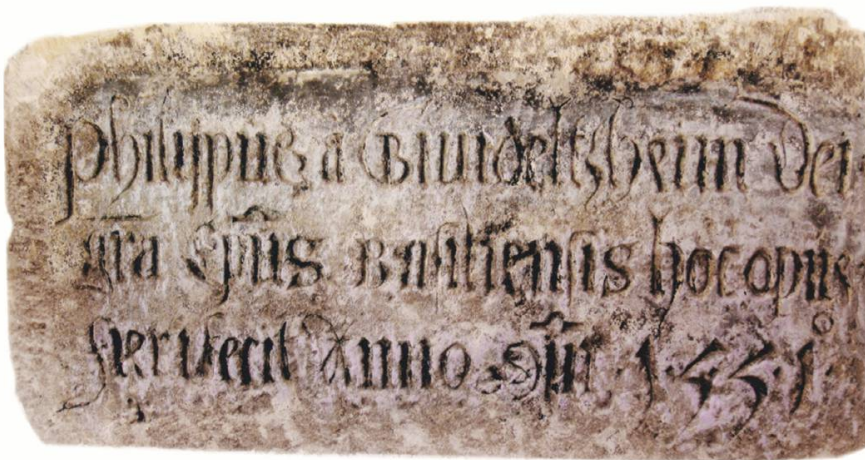 philippus a Gundeltzheim dei
gra Ep̃us Basiliensis hoc opus
fieri fecit Anno Dñi 1531